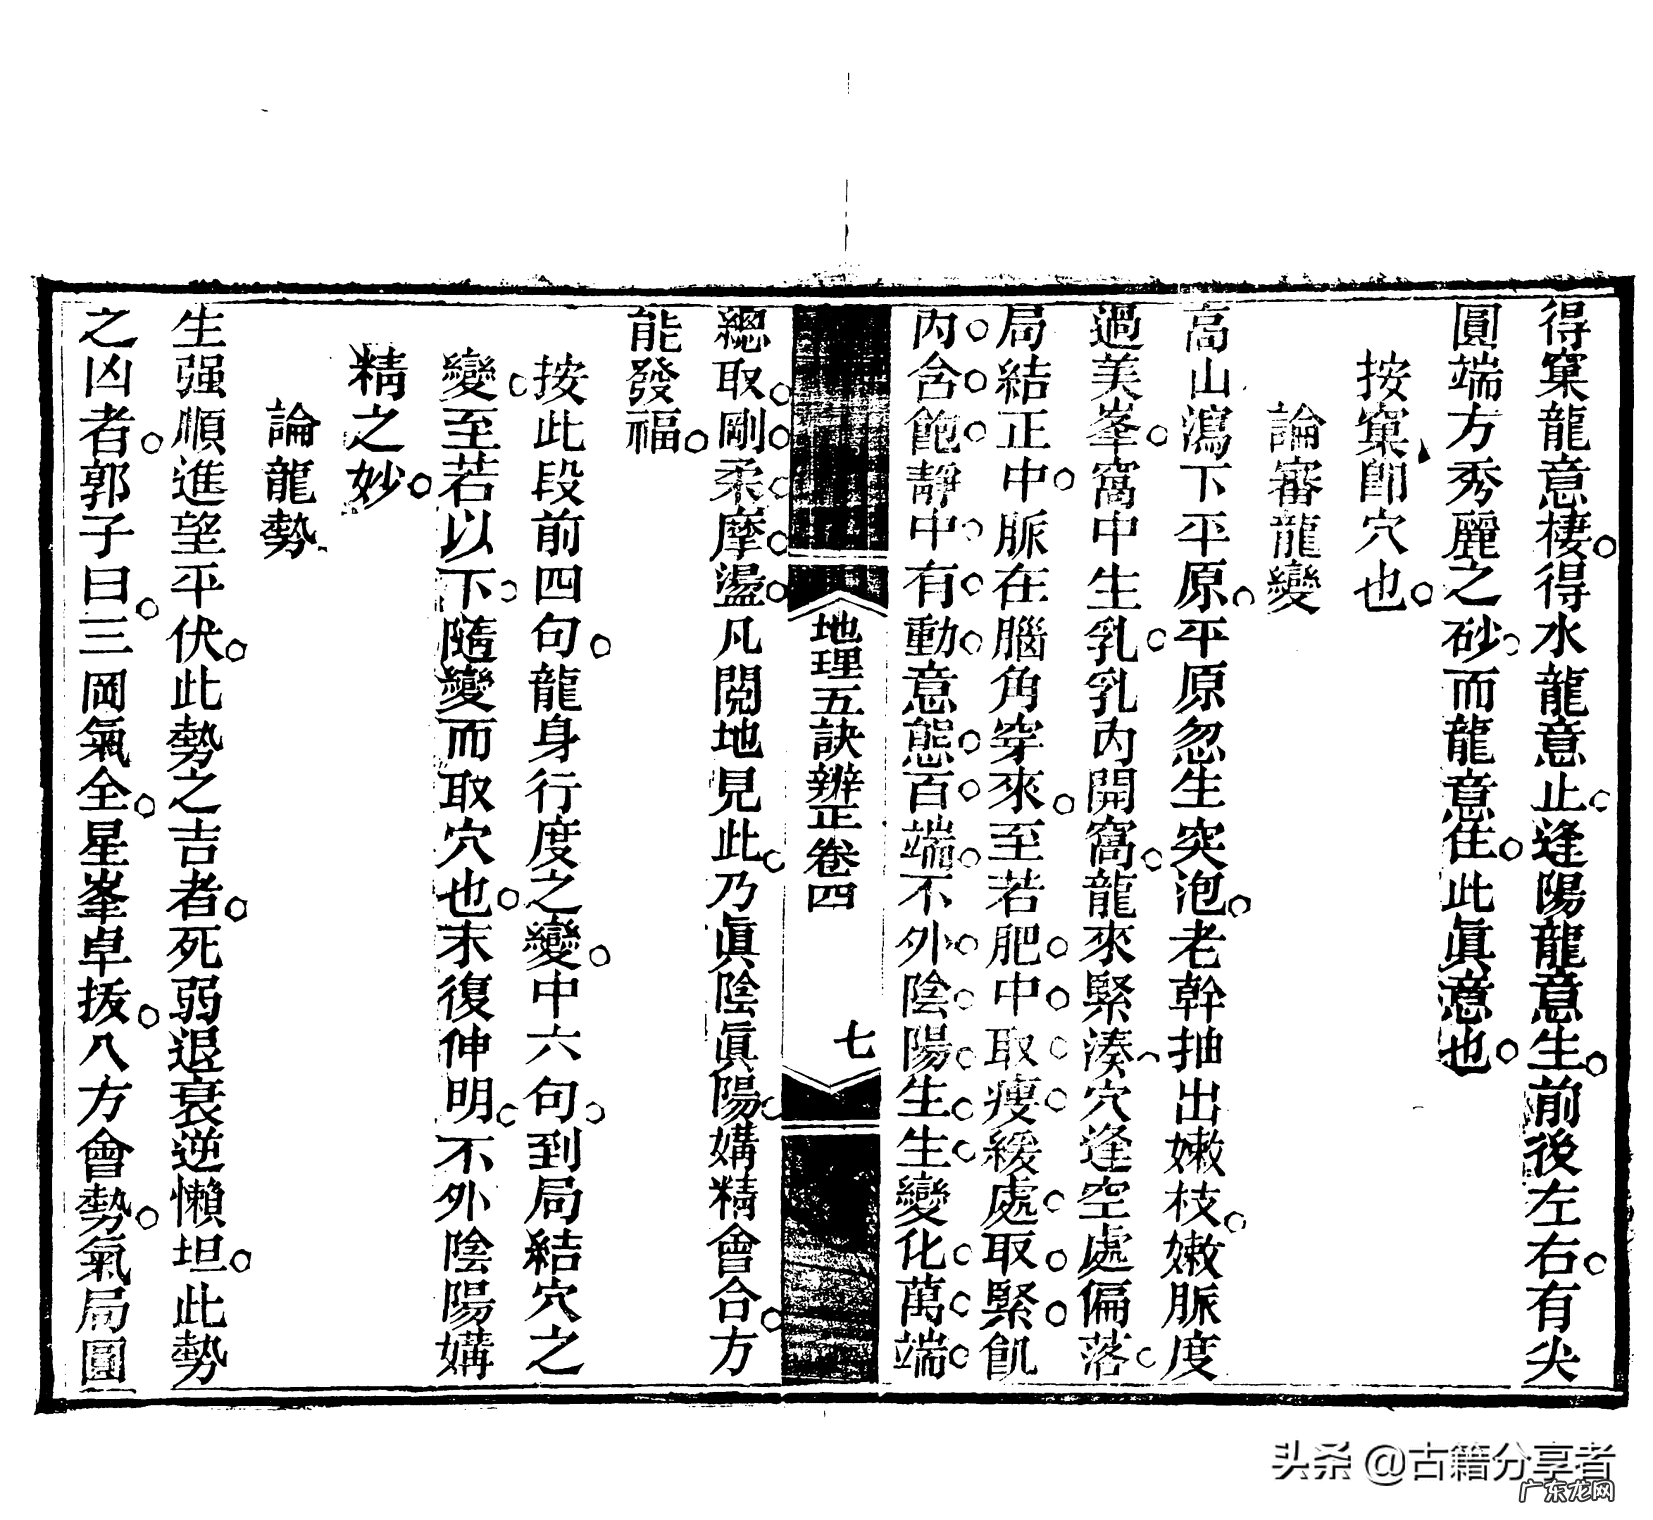 得窠龍意棲得水龍意止逢陽龍意生前後左右有尖
圓端方秀麗之砂而龍意住此眞意也
按窠卽穴也
論審龍變
高山瀉下平原平原忽生突泡老幹抽出嫩枝嫩脈度
過美峯窩中生乳乳內開窩龍來緊湊穴逢空處偏落
局結正中脈在腦角穿來至若肥中取瘦緩處取緊飢
內含飽靜中有動意態百端不外陰陽生生變化萬端
地理五訣辨正卷四
七
總取剛柔摩盪凡閱地見此乃眞陰眞陽媾精會合方
能發福
按此段前四句龍身行度之變中六句到局結穴之
變至若以下隨變而取穴也末復伸明不外陰陽媾
精之妙
論龍勢
生强順進望平伏此勢之吉者死弱退衰逆懶坦此勢
之凶者郭子曰三岡氣全星峯卓拔八方會勢氣局圓
头条 @古籍分享者
广东龙网